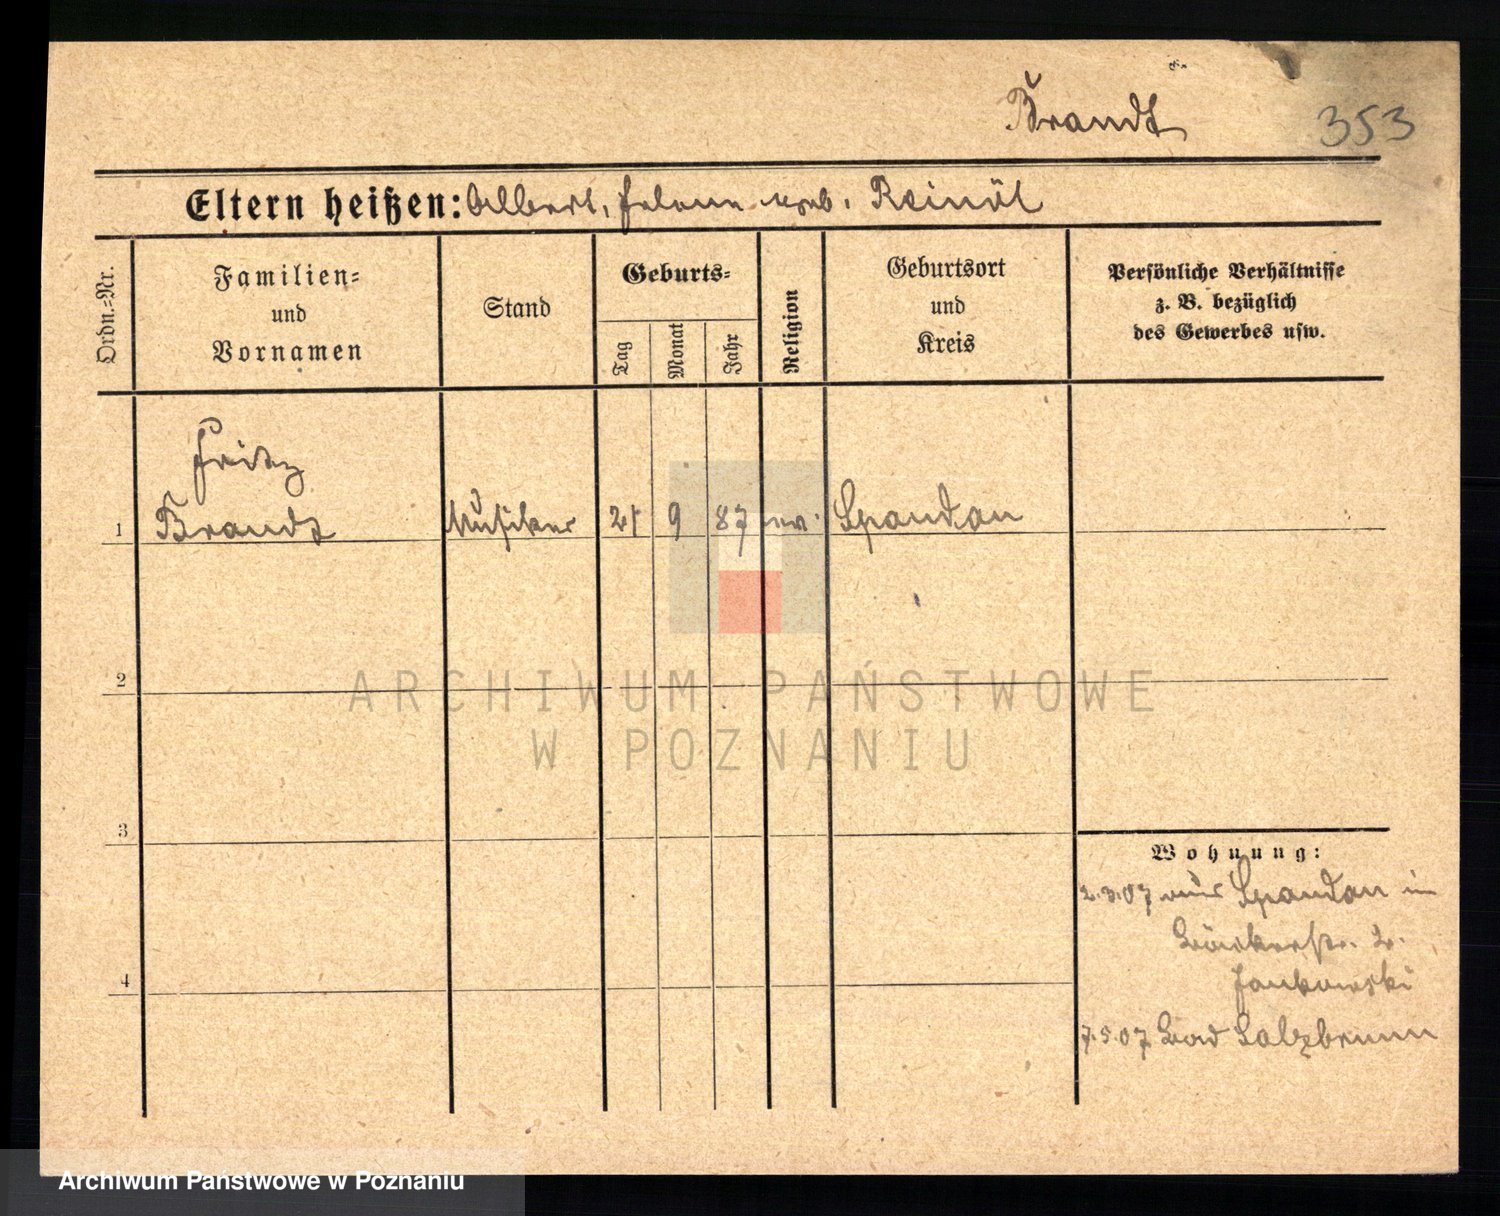 Brandt 353
Eltern heißen: Albert, Helene geb.
Ordn.=Nr.
Familien=
und
Vornamen
Stand
Geburts=
Tag
Monat
Jahr
Religion
Geburtsort
und
Kreis
Persönliche Verhältnisse
z. B. bezüglich
des Gewerbes usw.
Fritz
1 Brandt Musiker 21 9 87 ev. Spandau
2
3
4
Wohnung:
2.3.07 aus Spandau in
Bäckerstr. 2.
Jankowski
7.5.07 Bad Salzbrunn
ARCHIWUM PAŃSTWOWE
W POZNANIU
Archiwum Państwowe w Poznaniu